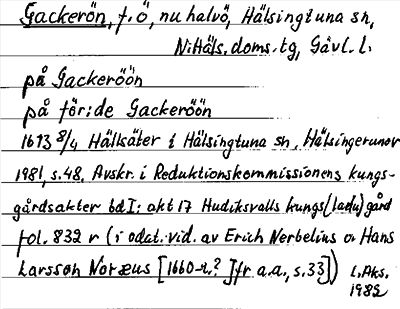 Gackerön, f. ö, nu halvö, Hälsingtuna sn,
N. Häls. doms. tg, Gävl. l.
på Gackeröön
på för:de Gackeröön
1673 8/4 Hällsäter i Hälsingtuna sn, Hälsingerunor
1981, s. 48. Avskr. i Reduktionskommissionens kungs-
gårdsakter bd I: akt 17 Hudiksvalls kungs(ladu)gård
fol. 832 r (i odat. vid. av Erich Nerbelius o. Hans
Larsson Noræus [1660-t.? Jfr a.a., s. 33])
L. Aks.
1985